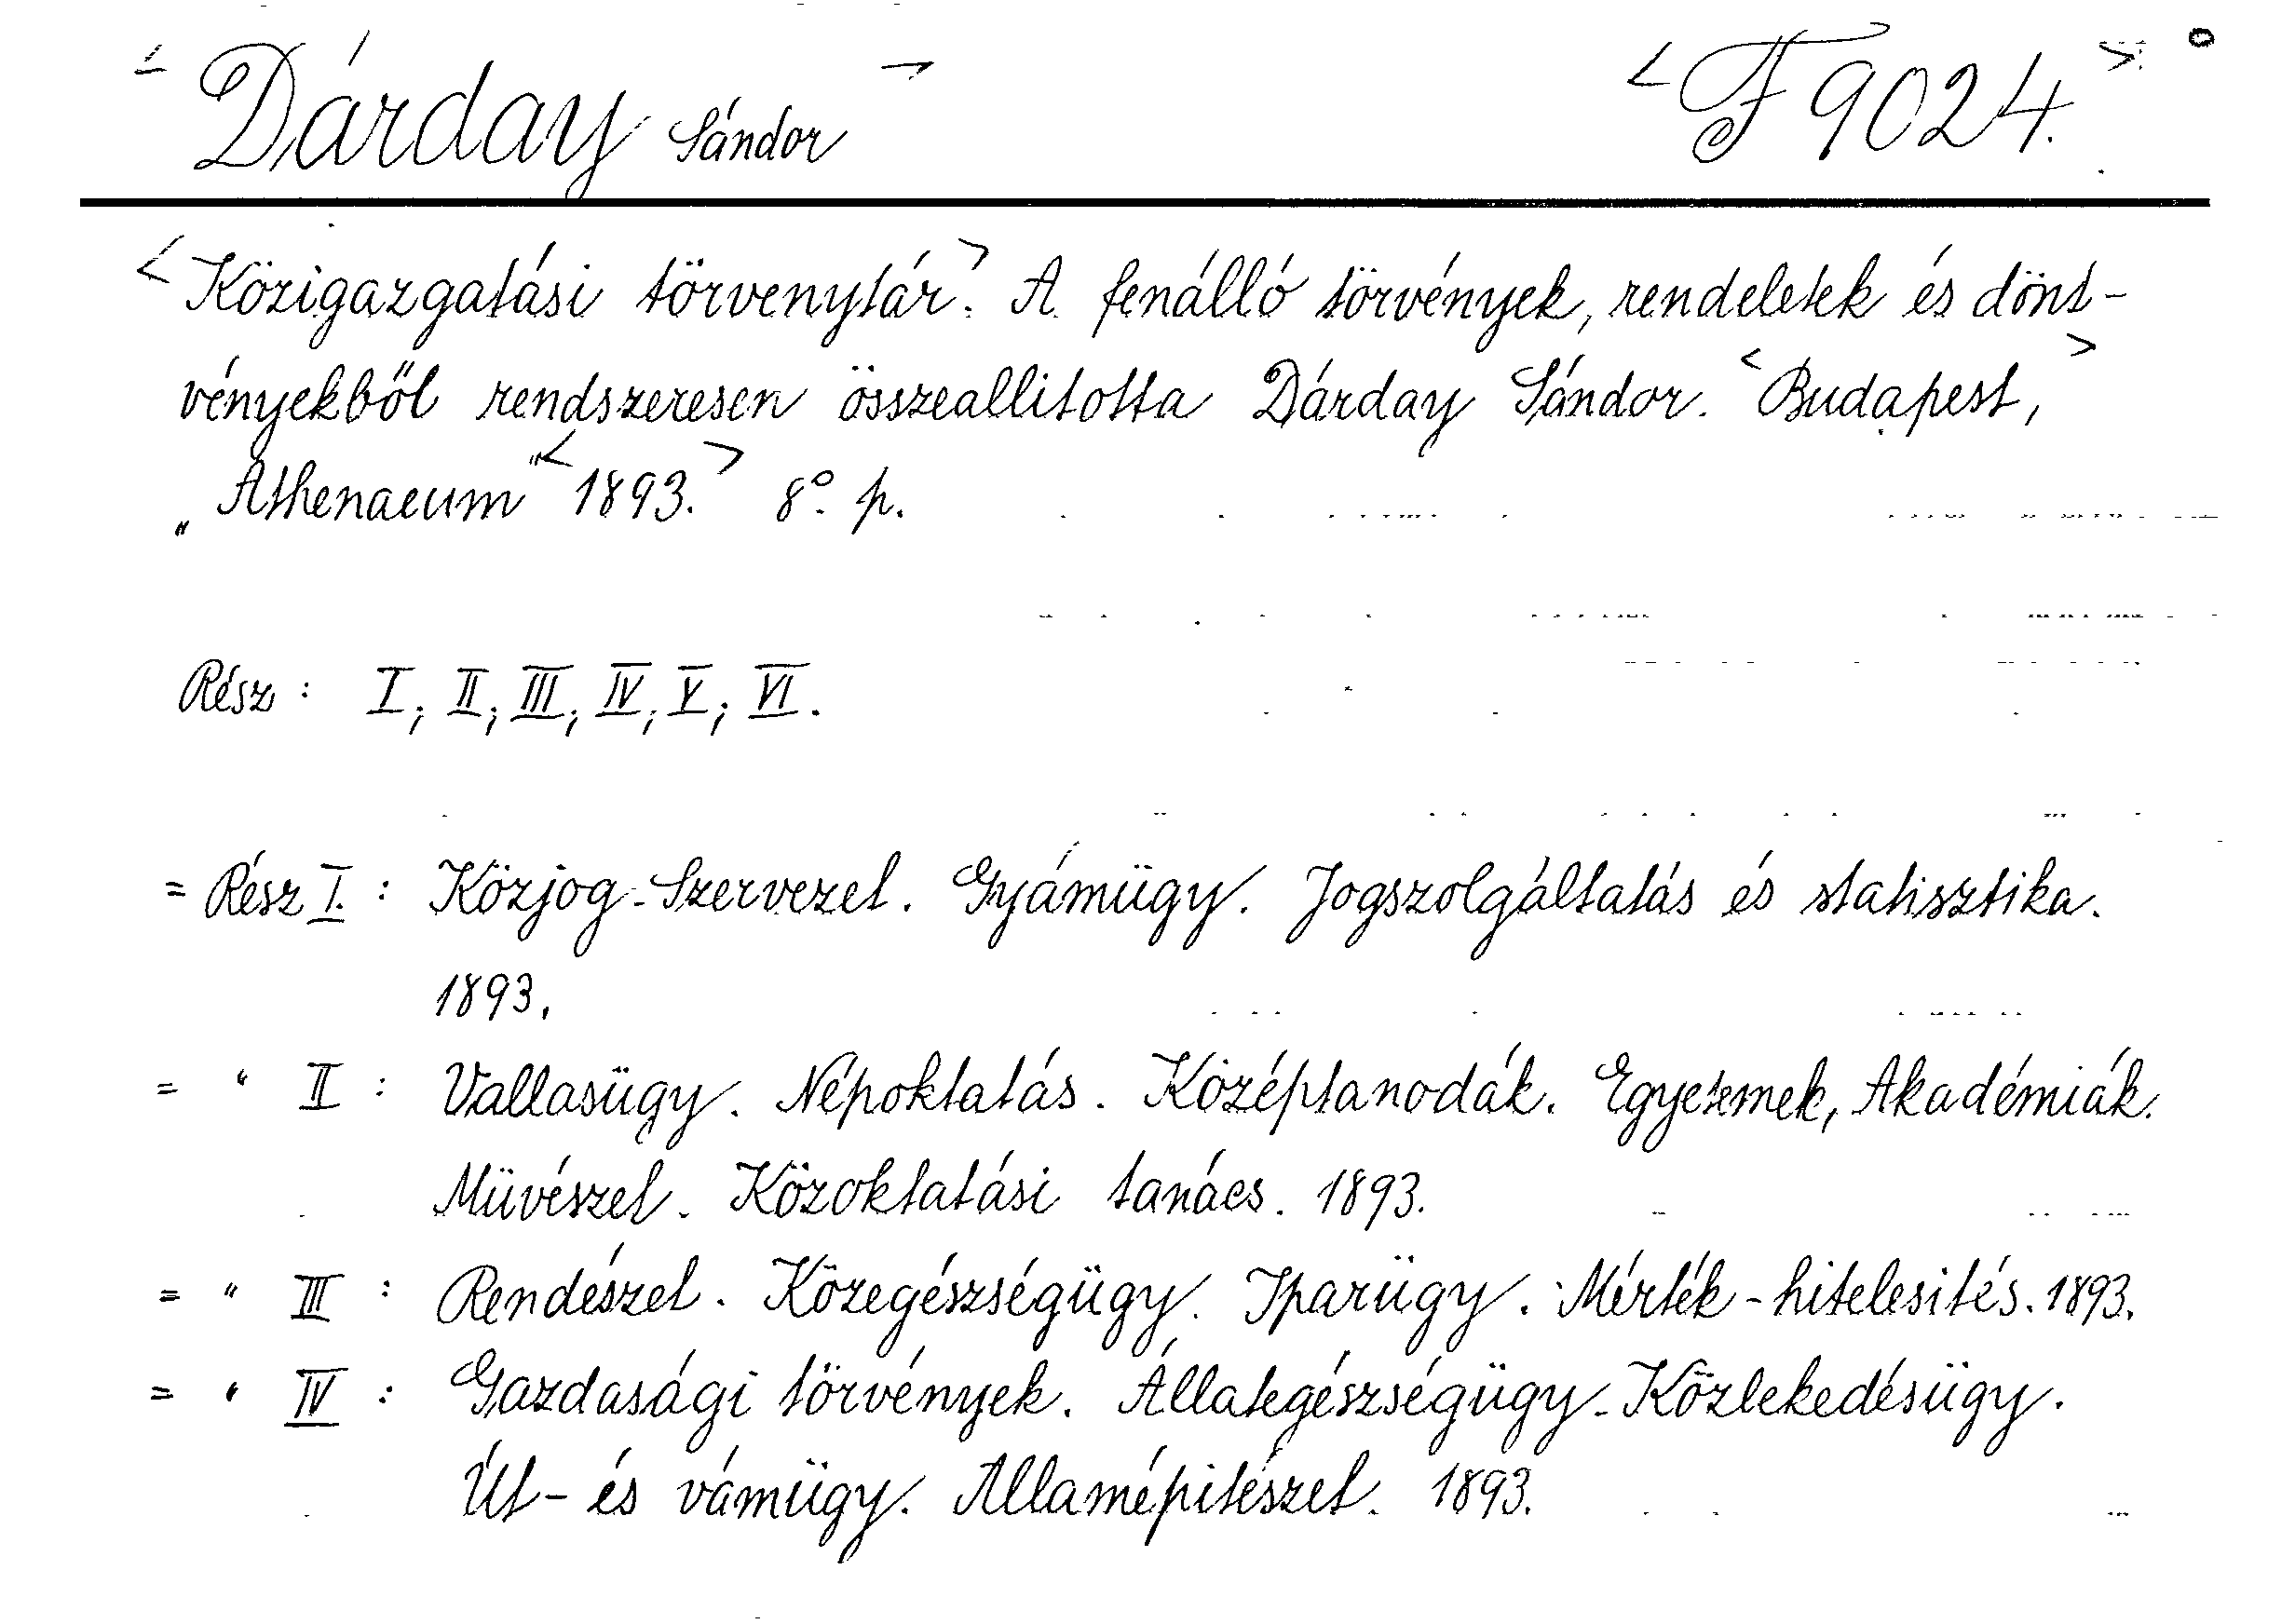 < Dárday Sándor > < F 9024. >
< Közigazgatási törvenytár. > A fenálló törvények, rendeletek és dönt-
vényekből rendszeresen összeallitotta Dárday Sándor. < Budapest, >
„Athenaeum“ < 1893. > 8° p.
Rész : I, II, III, IV, V, VI.
= Rész I. : Közjog-Szervezet. Gyámügy. Jogszolgáltatás és statisztika.
1893.
= " II : Vallasügy. Népoktatás. Középtanodák. Egyetemek, Akadémiák.
Müvészet. Közoktatási tanács. 1893.
= " III : Rendészet. Közegészségügy. Iparügy. Mérték-hitelesités. 1893.
= " IV : Gazdasági törvények. Állategészségügy-Közlekedésügy.
Út- és vámügy. Államépitészet. 1893.